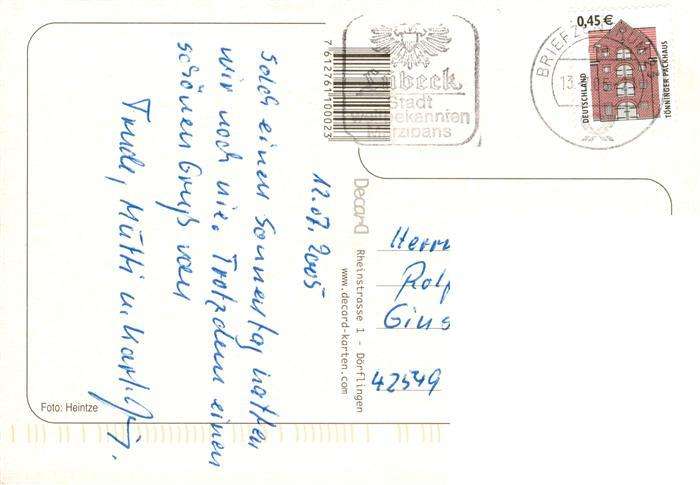 solch einen Sonnentag hatten
wir noch nie. Trotzdem einen
schönen Gruß von
Trude, Mutti u. Karl.
12.07.2005
Foto: Heintze
7612761100023
Decard
Rheinstrasse 1 - Dörflingen
www.decard-karten.com
Lübeck
Stadt
weltbekannten
Marzipans
BRIEFZENTRUM 23
13.
0,45 €
DEUTSCHLAND
TÖNNINGER PACKHAUS
Herrn
Rolf
42549